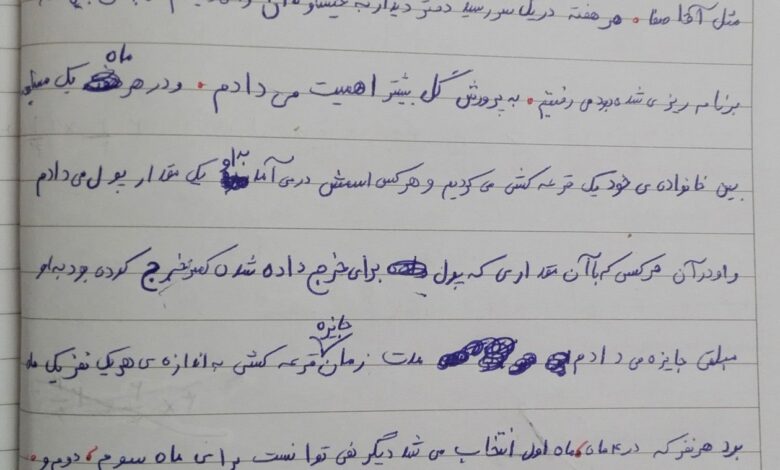 مثل آقا صفا. هر هفته در یک سر رسید دفتر دیدار به
برنامه ریزی شده بود می رفتیم. به پرورش گل بیشتر اهمیت می دادم. و در هر ماه یک
بین خانواده ی خود یک قرعه کشی می کردیم و هر کس اسمش در می آمد به او یک مقدار پول می دادم
و او در آن هر کس که با آن مقداری که پول برای خرج داده شده کمتر خرج کرده بود به او
مبلغی جایزه می دادم مدت زمان جایزه قرعه کشی به اندازه ی هر یک نفر یک ماه
بود هر نفر که در ماه اول انتخاب می شد دیگر نمی توانست برای ماه سوم، دوم و